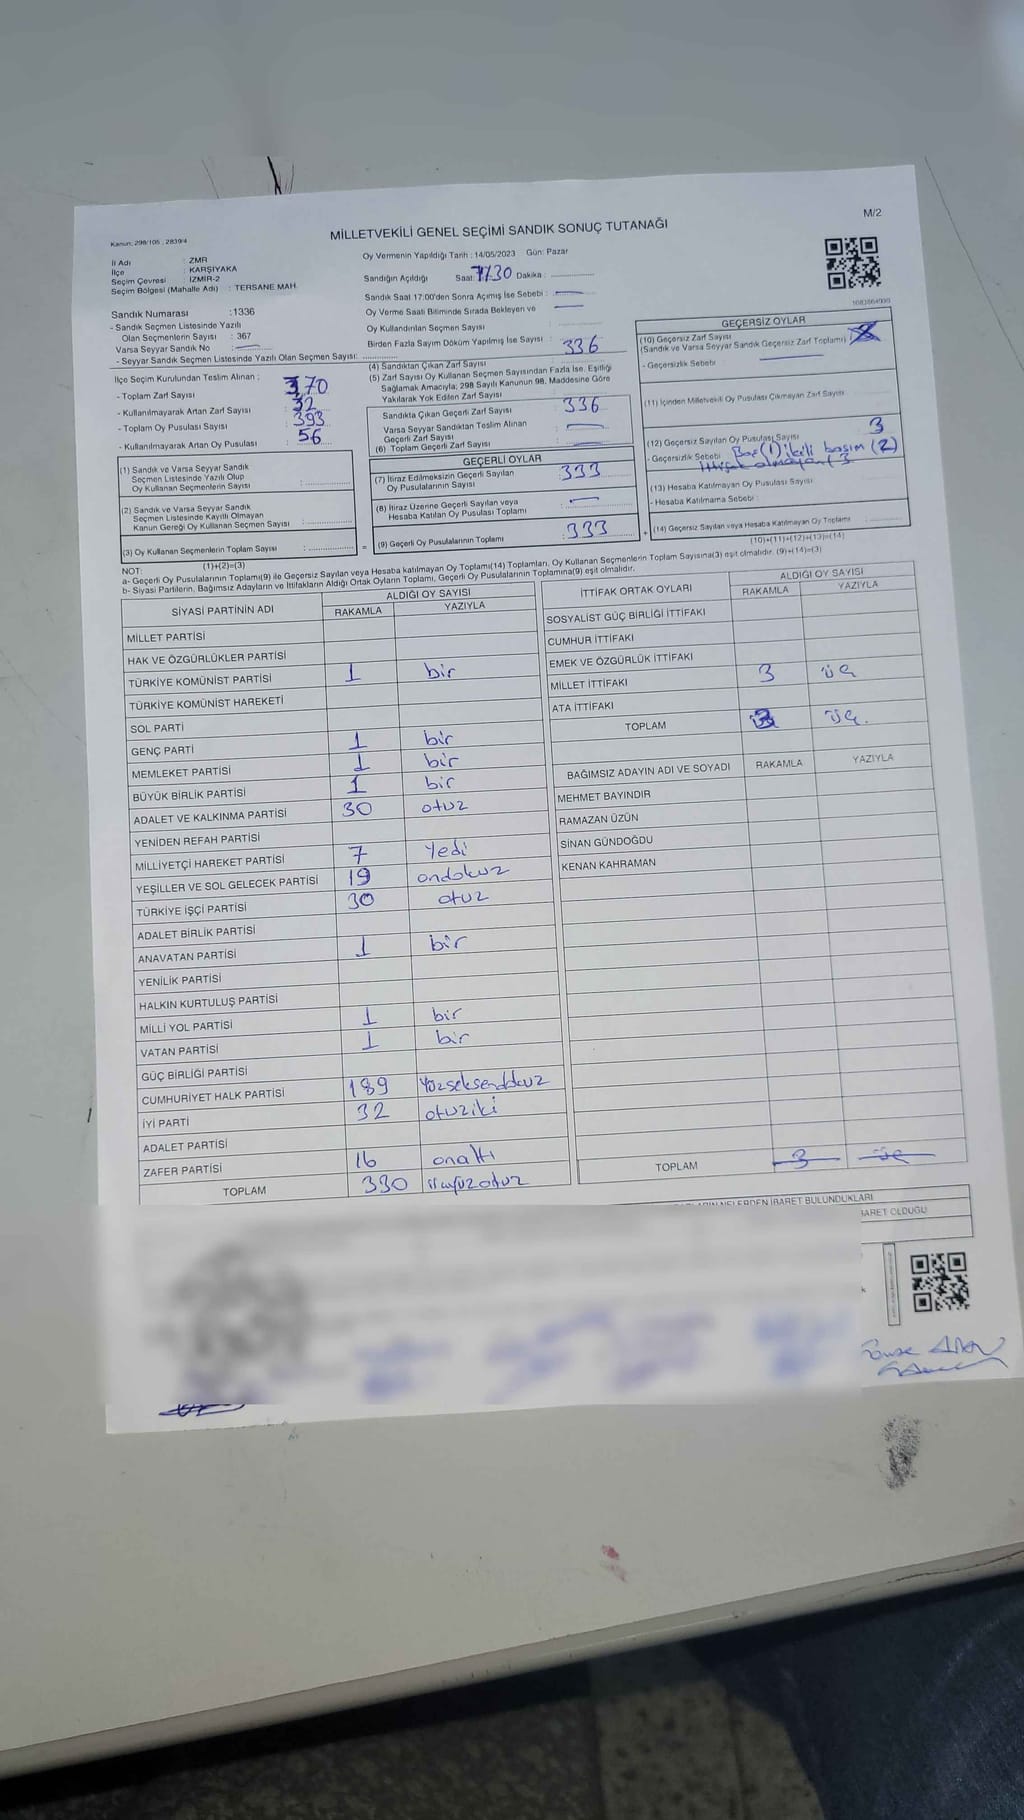 M/2
MİLLETVEKİLİ GENEL SEÇİMİ SANDIK SONUÇ TUTANAĞI
Kanun: 298/105, 2839/4
İl Adı : ZMR
İlçe : KARŞIYAKA
Seçim Çevresi : İZMİR-2
Seçim Bölgesi (Mahalle Adı) : TERSANE MAH.
Oy Vermenin Yapıldığı Tarih : 14/05/2023 Gün: Pazar
Sandığın Açıldığı Saat: 7/30 Dakika :
Sandık Saat 17:00'den Sonra Açımış İse Sebebi :
Oy Verme Saati Bitiminde Sırada Bekleyen ve
Oy Kullandırılan Seçmen Sayısı
Birden Fazla Sayım Döküm Yapılmış İse Sayısı :
Sandık Numarası : 1336
- Sandık Seçmen Listesinde Yazılı
Olan Seçmenlerin Sayısı : 367
Varsa Seyyar Sandık No :
- Seyyar Sandık Seçmen Listesinde Yazılı Olan Seçmen Sayısı:
İlçe Seçim Kurulundan Teslim Alınan :
- Toplam Zarf Sayısı : 370
- Kullanılmayarak Artan Zarf Sayısı : 32
- Toplam Oy Pusulası Sayısı : 393
- Kullanılmayarak Artan Oy Pusulası : 56
(1) Sandık ve Varsa Seyyar Sandık
Seçmen Listesinde Yazılı Olup
Oy Kullanan Seçmenlerin Sayısı :
(2) Sandık ve Varsa Seyyar Sandık
Seçmen Listesinde Kayıtlı Olmayan
Kanun Gereği Oy Kullanan Seçmen Sayısı :
(3) Oy Kullanan Seçmenlerin Toplam Sayısı :
(1)+(2)=(3)
(4) Sandıktan Çıkan Zarf Sayısı : 336
(5) Zarf Sayısı Oy Kullanan Seçmen Sayısından Fazla İse, Eşitliği
Sağlamak Amacıyla; 298 Sayılı Kanunun 98. Maddesine Göre
Yakılarak Yok Edilen Zarf Sayısı
Sandıkta Çıkan Geçerli Zarf Sayısı : 336
Varsa Seyyar Sandıktan Teslim Alınan
Geçerli Zarf Sayısı
(6) Toplam Geçerli Zarf Sayısı
GEÇERLİ OYLAR
(7) İtiraz Edilmeksizin Geçerli Sayılan
Oy Pusulalarının Sayısı : 333
(8) İtiraz Üzerine Geçerli Sayılan veya
Hesaba Katılan Oy Pusulası Toplamı
(9) Geçerli Oy Pusulalarının Toplamı : 333
GEÇERSİZ OYLAR
(10) Geçersiz Zarf Sayısı
(Sandık ve Varsa Seyyar Sandık Geçersiz Zarf Toplamı)
- Geçersizlik Sebebi :
(11) İçinden Milletvekili Oy Pusulası Çıkmayan Zarf Sayısı
(12) Geçersiz Sayılan Oy Pusulası Sayısı 3
- Geçersizlik Sebebi : (1) ikili basım (2)
(13) Hesaba Katılmayan Oy Pusulası Sayısı
- Hesaba Katılmama Sebebi :
(14) Geçersiz Sayılan veya Hesaba Katılmayan Oy Toplamı
(10)+(11)+(12)+(13)=(14)
NOT:
a- Geçerli Oy Pusulalarının Toplamı(9) ile Geçersiz Sayılan veya Hesaba katılmayan Oy Toplamı(14) Toplamları, Oy Kullanan Seçmenlerin Toplam Sayısına(3) eşit olmalıdır. (9)+(14)=(3)
b- Siyasi Partilerin, Bağımsız Adayların ve İttifakların Aldığı Ortak Oyların Toplamı, Geçerli Oy Pusulalarının Toplamına(9) eşit olmalıdır.
SİYASİ PARTİNİN ADI ALDIĞI OY SAYISI
RAKAMLA YAZIYLA
MİLLET PARTİSİ
HAK VE ÖZGÜRLÜKLER PARTİSİ
TÜRKİYE KOMÜNİST PARTİSİ 1 bir
TÜRKİYE KOMÜNİST HAREKETİ
SOL PARTİ
GENÇ PARTİ 1 bir
MEMLEKET PARTİSİ 1 bir
BÜYÜK BİRLİK PARTİSİ 1 bir
ADALET VE KALKINMA PARTİSİ 30 otuz
YENİDEN REFAH PARTİSİ
MİLLİYETÇİ HAREKET PARTİSİ 7 Yedi
YEŞİLLER VE SOL GELECEK PARTİSİ 19 ondokuz
TÜRKİYE İŞÇİ PARTİSİ 30 otuz
ADALET BİRLİK PARTİSİ
ANAVATAN PARTİSİ 1 bir
YENİLİK PARTİSİ
HALKIN KURTULUŞ PARTİSİ
MİLLİ YOL PARTİSİ 1 bir
VATAN PARTİSİ 1 bir
GÜÇ BİRLİĞİ PARTİSİ
CUMHURİYET HALK PARTİSİ 189 Yüzseksendokuz
İYİ PARTİ 32 otuziki
ADALET PARTİSİ
ZAFER PARTİSİ 16 onaltı
TOPLAM 330 üçyüzotuz
İTTİFAK ORTAK OYLARI ALDIĞI OY SAYISI
RAKAMLA YAZIYLA
SOSYALİST GÜÇ BİRLİĞİ İTTİFAKI
CUMHUR İTTİFAKI
EMEK VE ÖZGÜRLÜK İTTİFAKI
MİLLET İTTİFAKI 3 üç
ATA İTTİFAKI
TOPLAM 3 üç.
BAĞIMSIZ ADAYIN ADI VE SOYADI RAKAMLA YAZIYLA
MEHMET BAYINDIR
RAMAZAN ÜZÜN
SİNAN GÜNDOĞDU
KENAN KAHRAMAN
TOPLAM 3 üç
NELERDEN İBARET BULUNDUKLARI
İBARET OLDUĞU